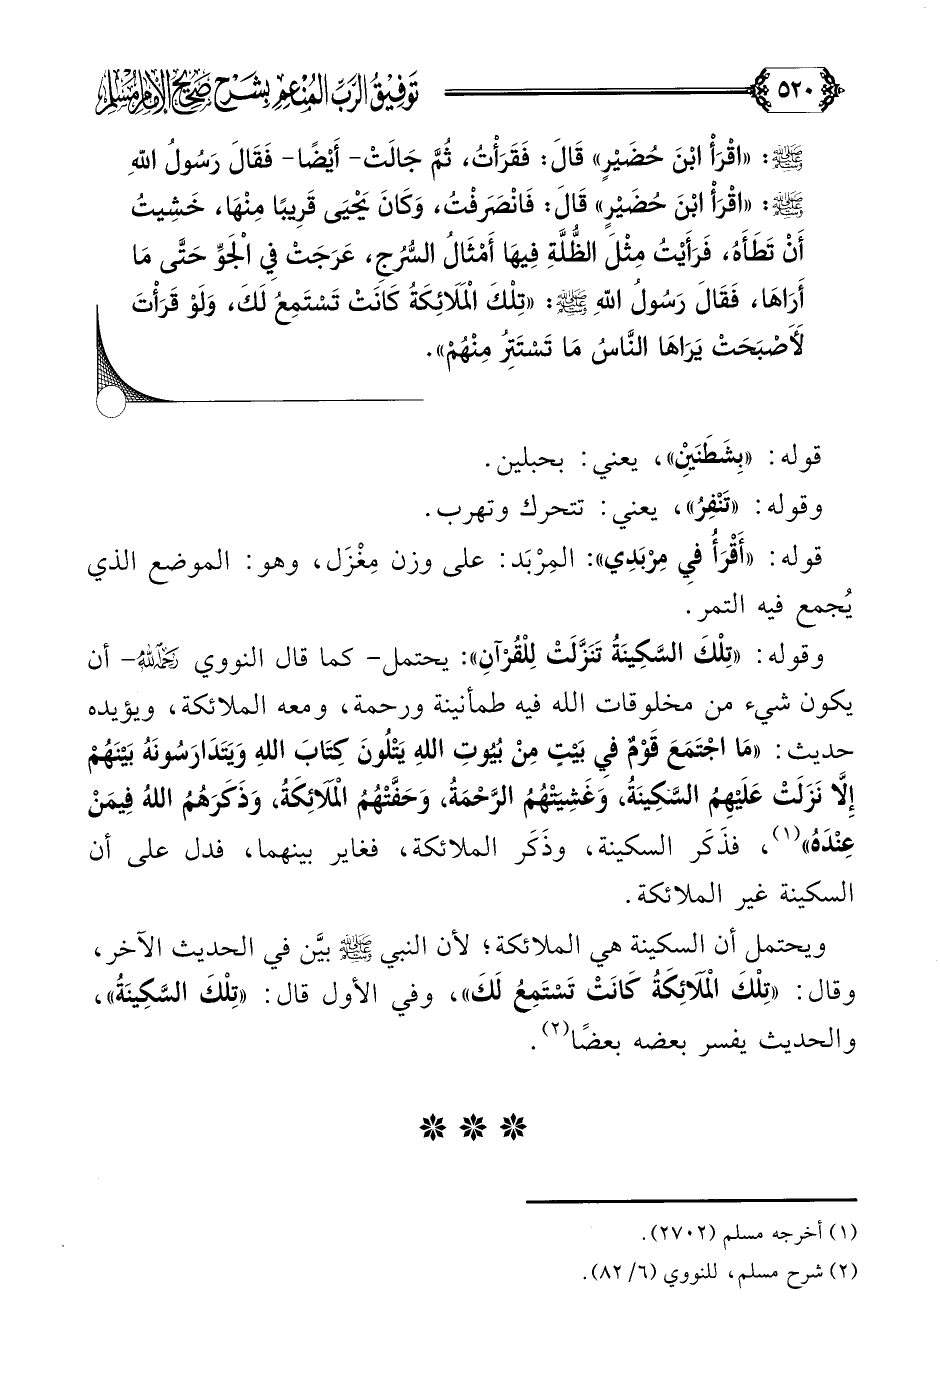 ٥٢٠ توفيق الرب المنعم بشرح صحيح الإمام مسلم
ﷺ: «اقْرَأْ ابْنَ حُضَيْرٍ» قَالَ: فَقَرَأْتُ، ثُمَّ جَالَتْ- أَيْضًا- فَقَالَ رَسُولُ اللهِ
ﷺ: «اقْرَأْ ابْنَ حُضَيْرٍ» قَالَ: فَانْصَرَفْتُ، وَكَانَ يَحْيَى قَرِيبًا مِنْهَا، خَشِيتُ
أَنْ تَطَأَهُ، فَرَأَيْتُ مِثْلَ الظُّلَّةِ فِيهَا أَمْثَالُ السُّرُجِ، عَرَجَتْ فِي الْجَوِّ حَتَّى مَا
أَرَاهَا، فَقَالَ رَسُولُ اللهِ ﷺ: «تِلْكَ الْمَلَائِكَةُ كَانَتْ تَسْتَمِعُ لَكَ، وَلَوْ قَرَأْتَ
لَأَصْبَحَتْ يَرَاهَا النَّاسُ مَا تَسْتَتِرُ مِنْهُمْ».
قوله: «بِشَطَنَيْنِ»، يعني: بحبلين.
وقوله: «تَنْفِرُ»، يعني: تتحرك وتهرب.
قوله: «أَقْرَأُ فِي مِرْبَدِي»: المِرْبَد: على وزن مِغْزَل، وهو: الموضع الذي
يُجمع فيه التمر.
وقوله: «تِلْكَ السَّكِينَةُ تَنَزَّلَتْ لِلْقُرْآنِ»: يحتمل- كما قال النووي رَحِمَهُ اللهُ- أن
يكون شيء من مخلوقات الله فيه طمأنينة ورحمة، ومعه الملائكة، ويؤيده
حديث: «مَا اجْتَمَعَ قَوْمٌ فِي بَيْتٍ مِنْ بُيُوتِ اللهِ يَتْلُونَ كِتَابَ اللهِ وَيَتَدَارَسُونَهُ بَيْنَهُمْ
إِلَّا نَزَلَتْ عَلَيْهِمُ السَّكِينَةُ، وَغَشِيَتْهُمُ الرَّحْمَةُ، وَحَفَّتْهُمُ الْمَلَائِكَةُ، وَذَكَرَهُمُ اللهُ فِيمَنْ
عِنْدَهُ»(١)، فذَكَر السكينة، وذَكَر الملائكة، فغاير بينهما، فدل على أن
السكينة غير الملائكة.
ويحتمل أن السكينة هي الملائكة؛ لأن النبي ﷺ بيَّن في الحديث الآخر،
وقال: «تِلْكَ الْمَلَائِكَةُ كَانَتْ تَسْتَمِعُ لَكَ»، وفي الأول قال: «تِلْكَ السَّكِينَةُ»،
والحديث يفسر بعضه بعضًا(٢).
(١) أخرجه مسلم (٢٧٠٢).
(٢) شرح مسلم، للنووي (٦/ ٨٢).